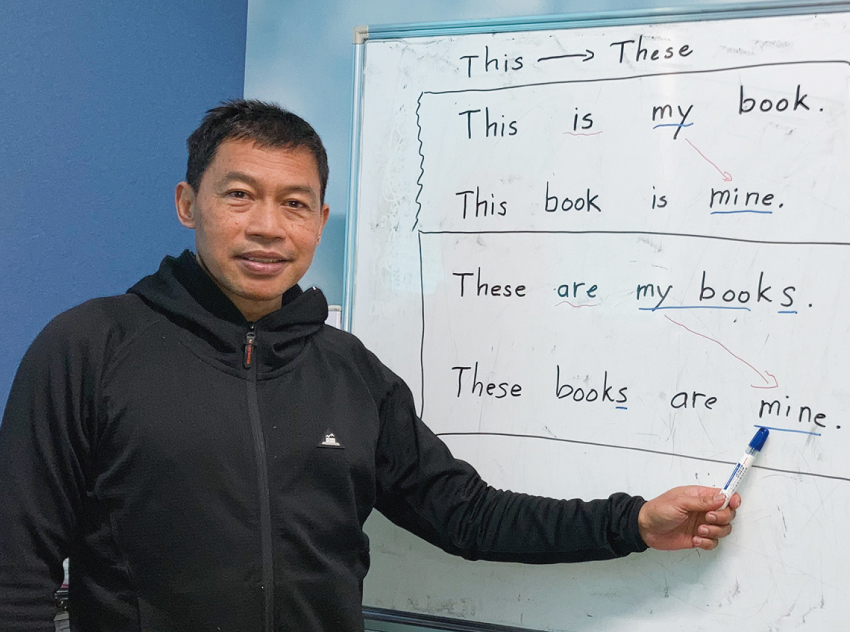 This → These
This is my book.
This book is mine.
These are my books.
These books are mine.